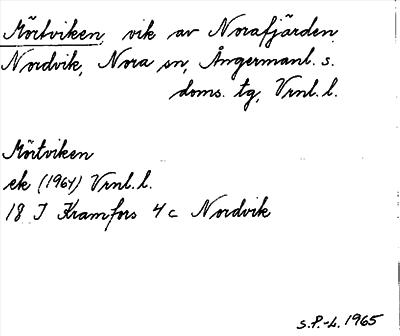 Mörtviken, vik av Norafjärden,
Nordvik, Nora sn, Ångermanl. s.
doms. tg, Vrnl. l.
Mörtviken
ek (1964) Vrnl. l.
18 I Kramfors 4 c Nordvik
S.P.-L. 1965